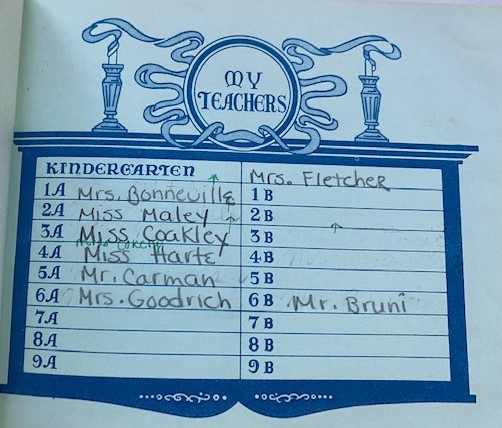 MY
TEACHERS
KINDERGARTEN Mrs. Fletcher
1A Mrs. Bonneville 1B
2A Miss Maley 2B
3A Miss Coakley 3B
4A Miss Harte 4B
5A Mr. Carman 5B
6A Mrs. Goodrich 6B Mr. Bruni
7A 7B
8A 8B
9A 9B